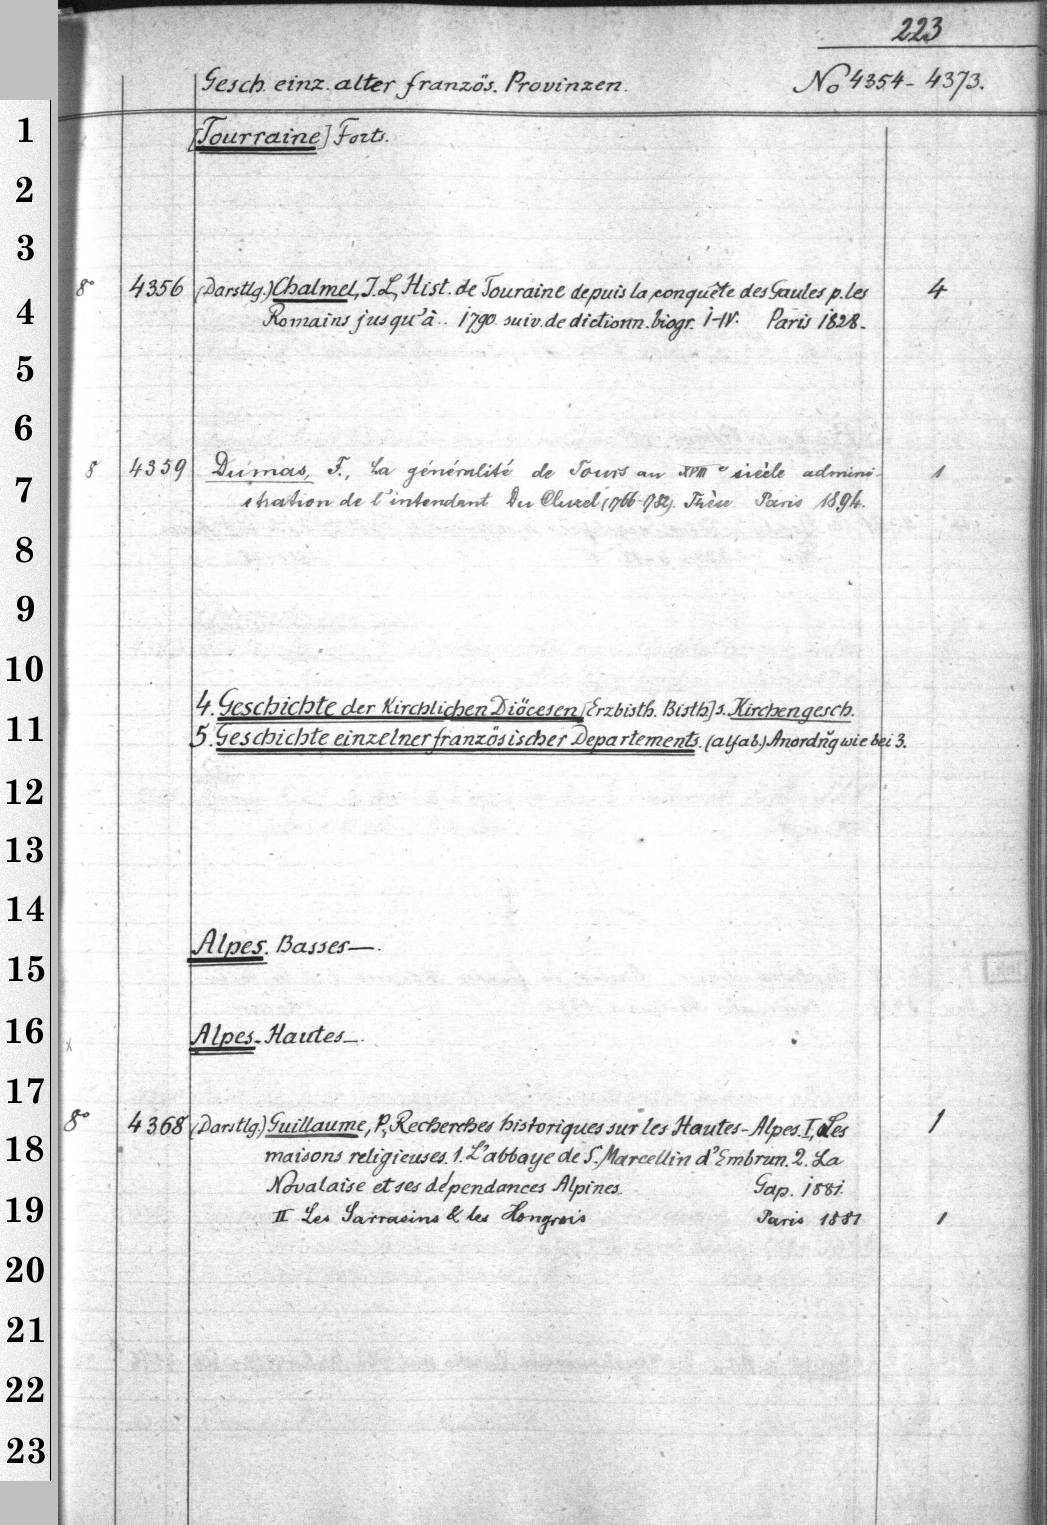 223
Gesch. einz. alter französ. Provinzen. No 4354- 4373.
1 [Tourraine] Forts.
2
3
8° 4356 (Darstlg.) Chalmel, J. L, Hist. de Touraine depuis la conquête des Gaules p. les 4
4 Romains jusqu'à.. 1790. suiv. de dictionn. biogr. I-IV. Paris 1828.
5
6
8 4359 Dumas, F., La généralité de Tours au XVIII e siècle admini- 1
7 stration de l'intendant Du Cluzel (1766-1782). Thèse Paris 1894.
8
9
10
4. Geschichte der Kirchlichen Diöcesen [Erzbisth. Bisth] s. Kirchengesch.
11 5. Geschichte einzelner französischer Departements. (alfab.) Anordng wie bei 3.
12
13
14
15 Alpes. Basses—.
16 Alpes-Hautes—.
17
8° 4368 (Darstlg) Guillaume, P., Recherches historiques sur les Hautes-Alpes. I, Les 1
18 maisons religieuses. 1. L'abbaye de S. Marcellin d'Embrun. 2. La
Novalaise et ses dépendances Alpines. Gap. 1881.
19 II Les Sarrasins & les Hongrois Paris 1881 1
20
21
22
23